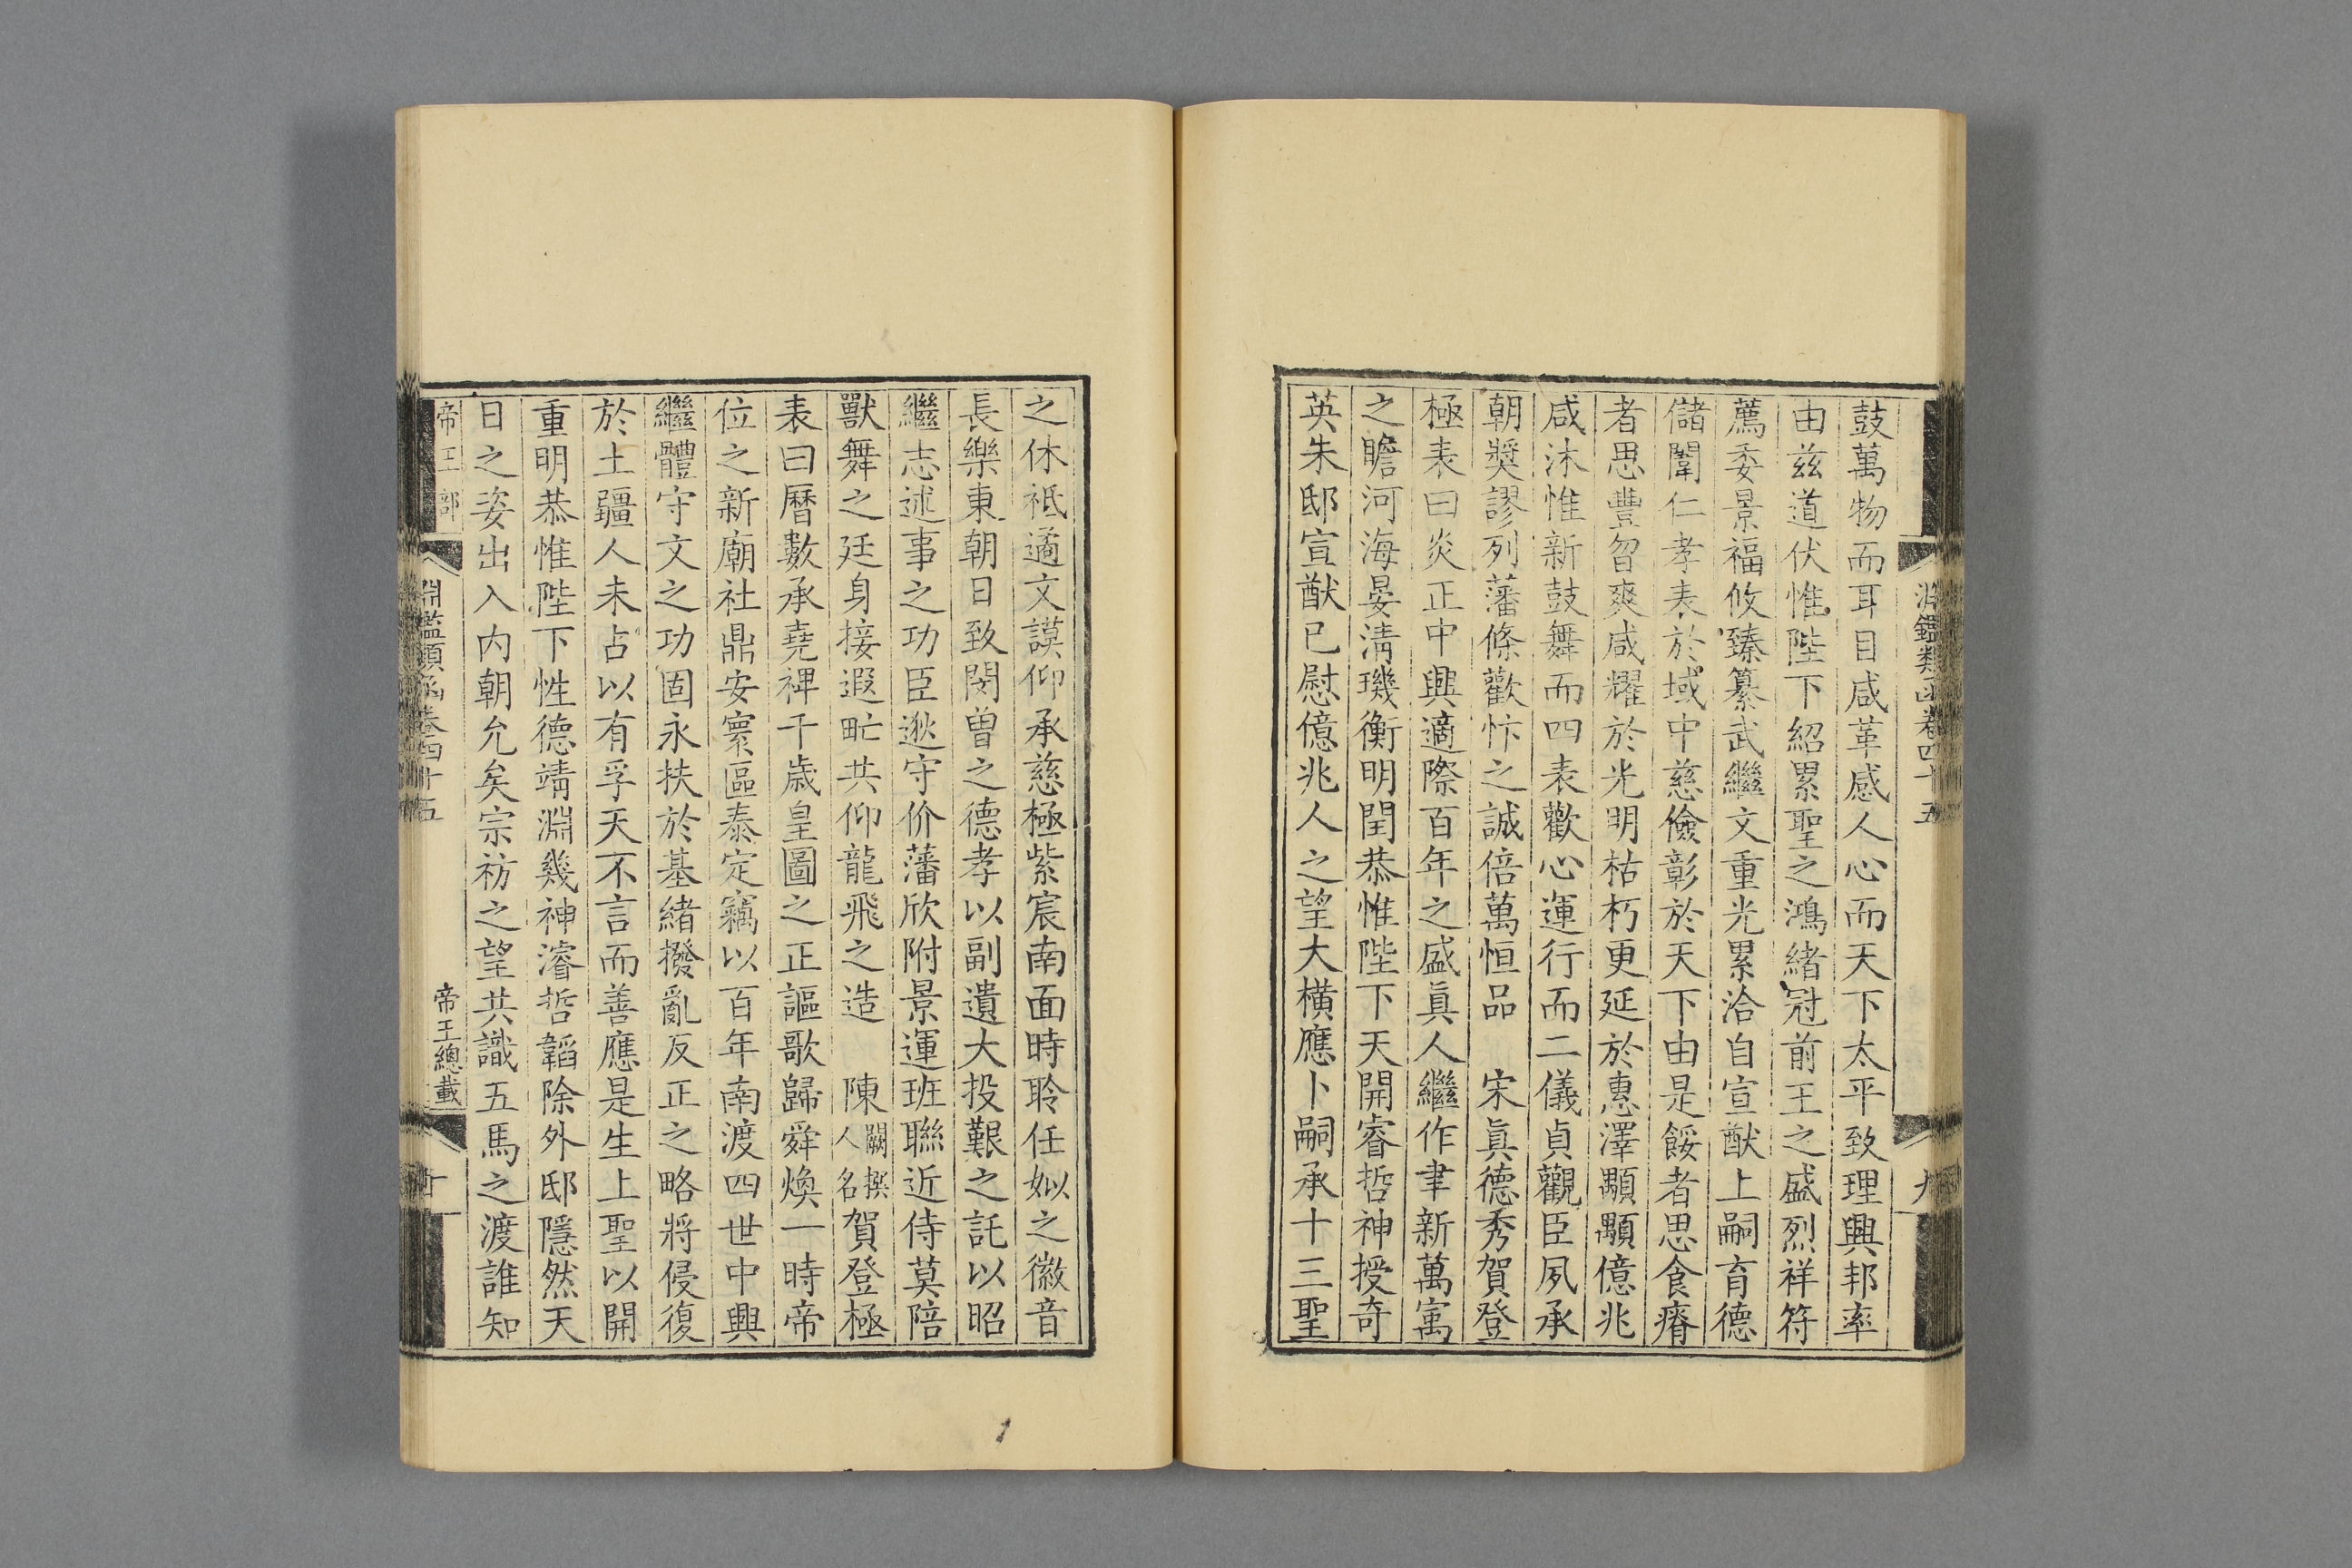 鼓萬物而耳目咸革感人心而天下太平致理興邦率
由兹道伏惟陛下紹累聖之鴻緒冠前王之盛烈祥符
薦委景福攸臻纂武繼文重光累洽自宣猷上嗣育德
儲闈仁孝表於域中慈儉彰於天下由是餒者思食瘠
者思豐曶爽咸耀於光明枯朽更延於惠澤顒顒億兆
咸沐惟新鼓舞而四表歡心運行而二儀貞觀臣夙承
朝奬謬列藩條歡忭之誠倍萬恒品 宋眞德秀賀登
極表曰炎正中興適際百年之盛眞人繼作聿新萬寓
之瞻河海晏淸璣衡明閏恭惟陛下天開睿哲神授奇
英朱邸宣猷已慰億兆人之望大橫應卜嗣承十三聖
之休祇遹文謨仰承慈極紫宸南面時聆任姒之徽音
長樂東朝日致閔曾之德孝以副遺大投艱之託以昭
繼志述事之功臣逖守价藩欣附景運班聯近侍莫陪
獸舞之廷身接遐甿共仰龍飛之造 陳闕撰人名賀登極
表曰曆數承堯裨千歲皇圖之正謳歌歸舜煥一時帝
位之新廟社鼎安寰區泰定竊以百年南渡四世中興
繼體守文之功固永扶於基緒撥亂反正之略將侵復
於土疆人未占以有孚天不言而善應是生上聖以開
重明恭惟陛下性德靖淵幾神濬哲韜除外邸隱然天
日之姿出入内朝允矣宗祊之望共識五馬之渡誰知
帝王部
淵鑑類函卷四十五
帝王總載
十
淵鑑類函卷四十五
九